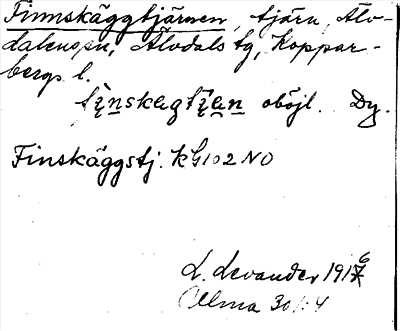 Finnskäggtjärnen, tjärn, Älv-
dalens sn, Älvdals tg, Koppar-
bergs l.
oböjl. Dy.
Finskäggstj. kG102 NO
L. Levander 1916
Alma 30/:4